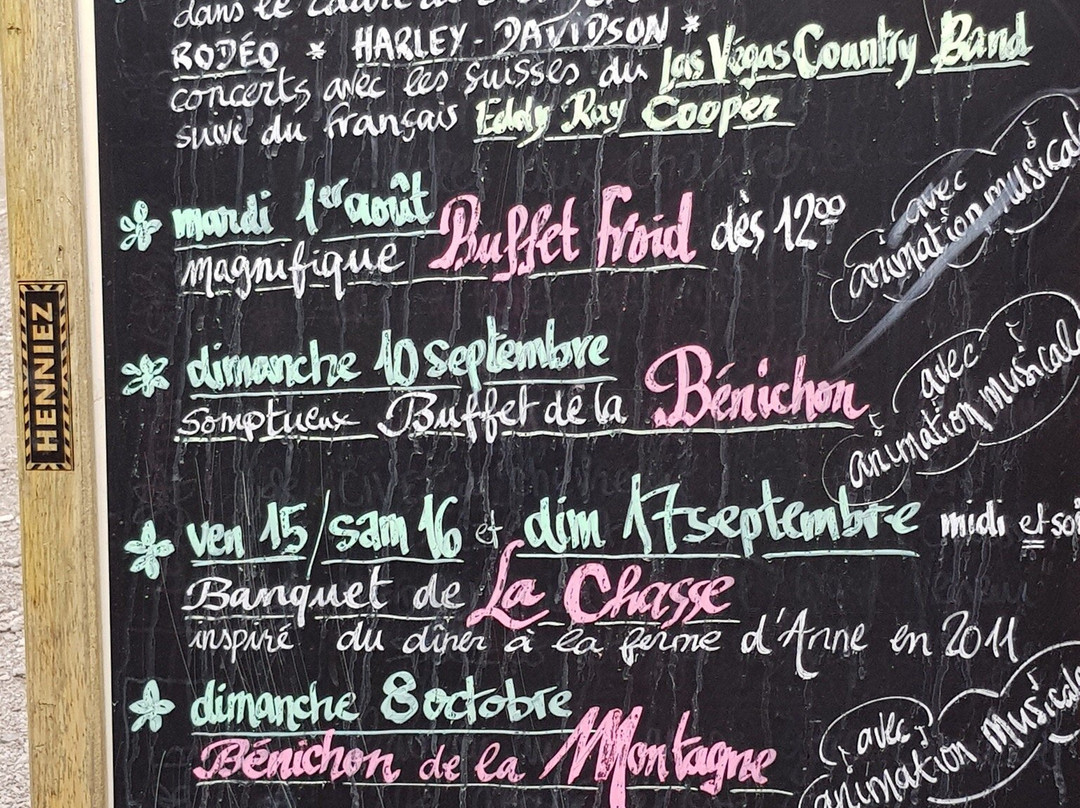 dans le
RODÉO * HARLEY-DAVIDSON *
concerts avec les suisses du Las Végas Country Band
suivi du français Eddy Ray Cooper
mardi 1er août
magnifique Buffet froid dès 12oo
avec
animation musicale
dimanche 10 septembre
somptueux Buffet de la Bénichon
avec
animation musicale
ven 15/sam 16 et dim 17 septembre midi et soi
Banquet de La Chasse
inspiré du dîner à la ferme d'Anne en 2011
dimanche 8 octobre
Bénichon de la Montagne
avec
animation musicale
HENNIEZ